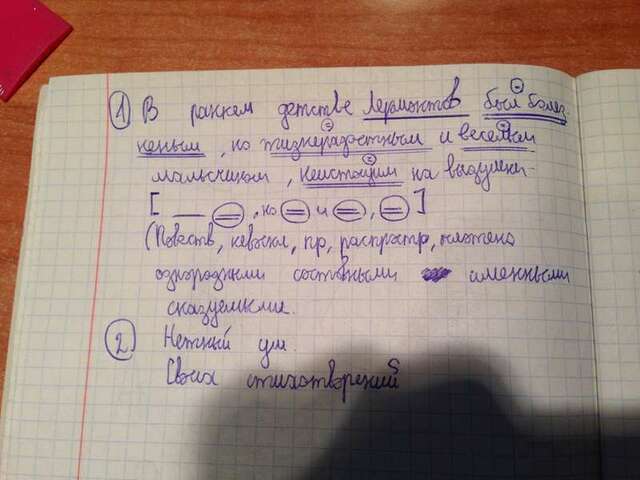 1) В раннем детстве Лермонтов был болез
неным, но жизнерадостным и веселым
мальчиком, неистощим на выдумки.
[ __ = , но = и = , = ]
(Повств, невоскл, пр, распростр, осложнено
однородными составными именными
сказуемыми.
2. Нежный ум.
Своих стихотворений